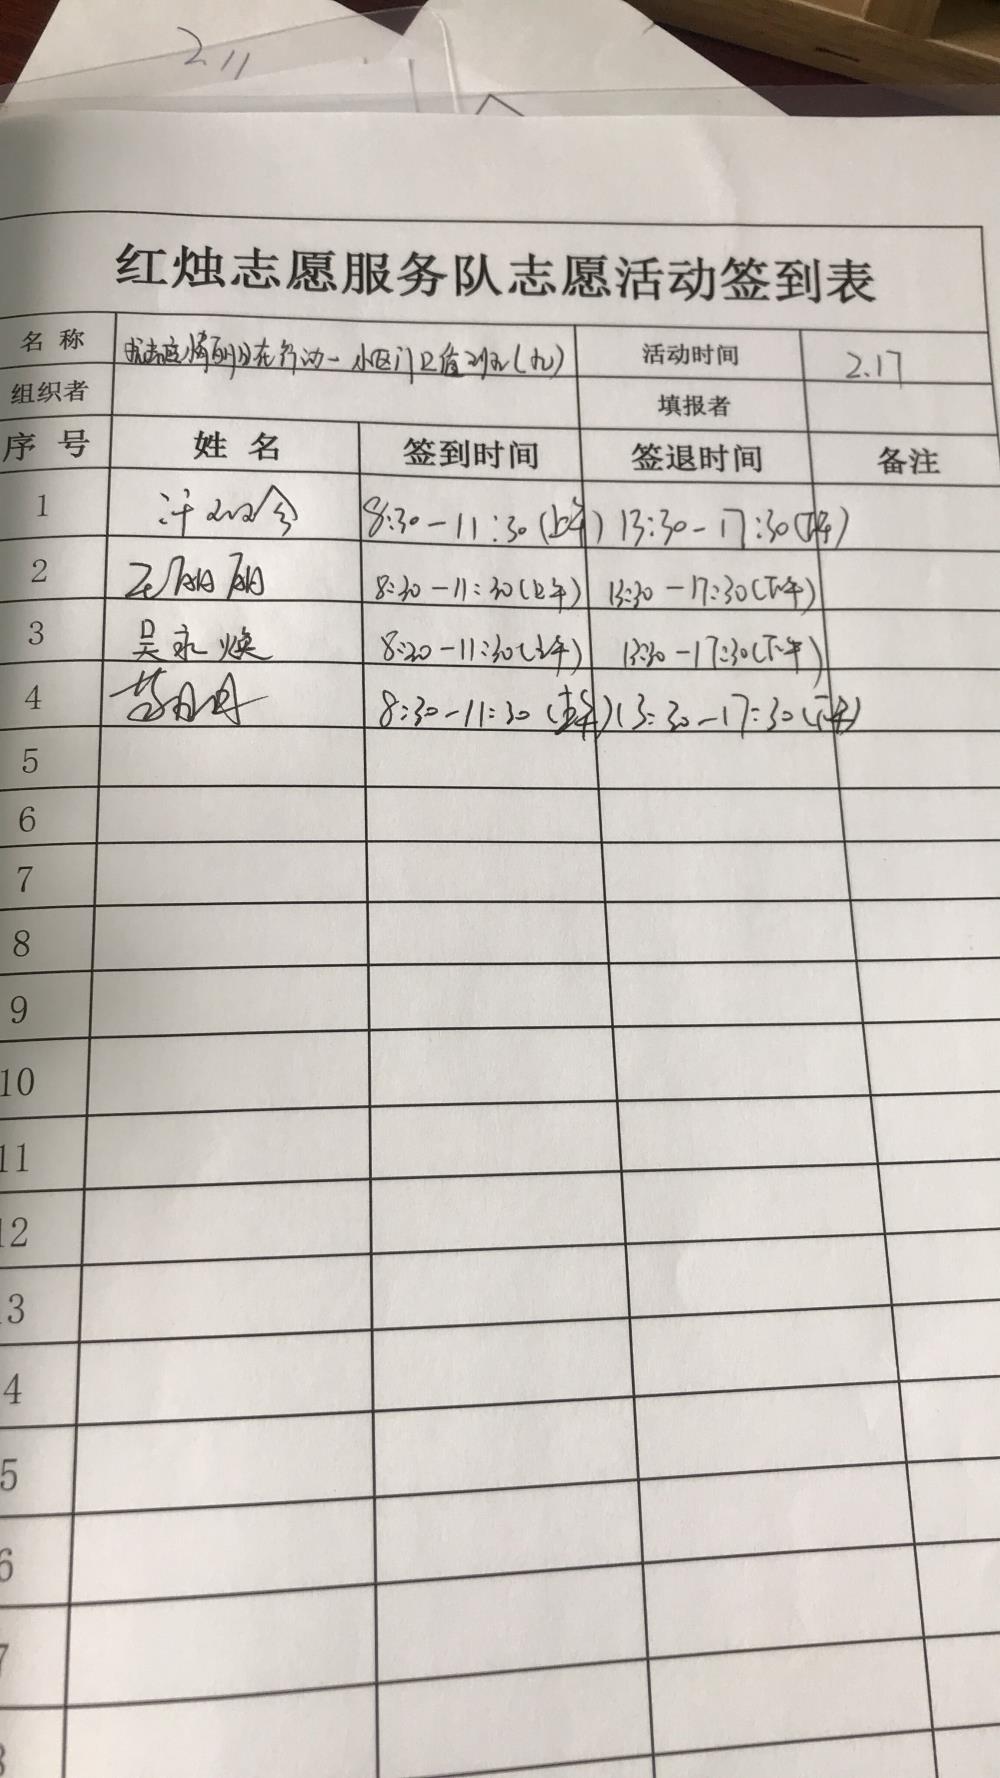 211
红烛志愿服务队志愿活动签到表
名 称 在行动一小区门卫值 (九) 活动时间 2.17
组织者 填报者
序 号 姓 名 签到时间 签退时间 备注
1 8:30-11:30(上午) 13:30-17:30(下午)
2 丽丽 8:30-11:30(上午) 13:30-17:30(下午)
3 吴永焕 8:30-11:30(上午) 13:30-17:30(下午)
4 8:30-11:30(上午) 13:30-17:30(下午)
5
6
7
8
9
10
11
12
13
4
5
6
7
8